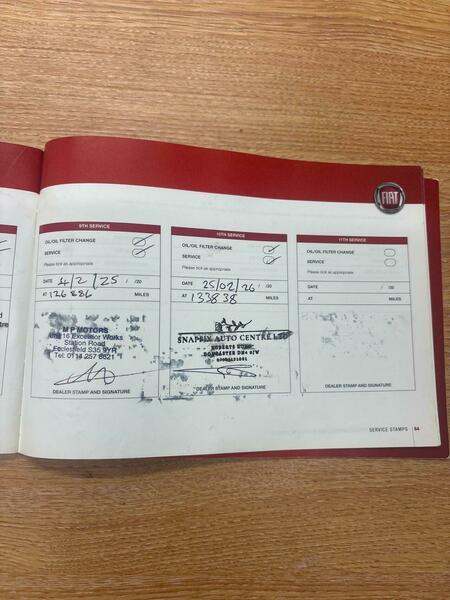 FIAT
9TH SERVICE
OIL/OIL FILTER CHANGE
SERVICE
Please tick as appropriate
DATE 4/2/25 /20
AT 126 886 MILES
M P MOTORS
Unit 16 Excelsior Works
Station Road
Ecclesfield S35 9YR
Tel: 0114 257 8621
DEALER STAMP AND SIGNATURE
10TH SERVICE
OIL/OIL FILTER CHANGE
SERVICE
Please tick as appropriate
DATE 25/02/26 /20
AT 133838 MILES
SNAPFIX AUTO CENTRE LTD
ROBERTS ROAD
DONCASTER DN4
DEALER STAMP AND SIGNATURE
11TH SERVICE
OIL/OIL FILTER CHANGE
SERVICE
Please tick as appropriate
DATE / /20
AT MILES
DEALER STAMP AND SIGNATURE
SERVICE STAMPS 64